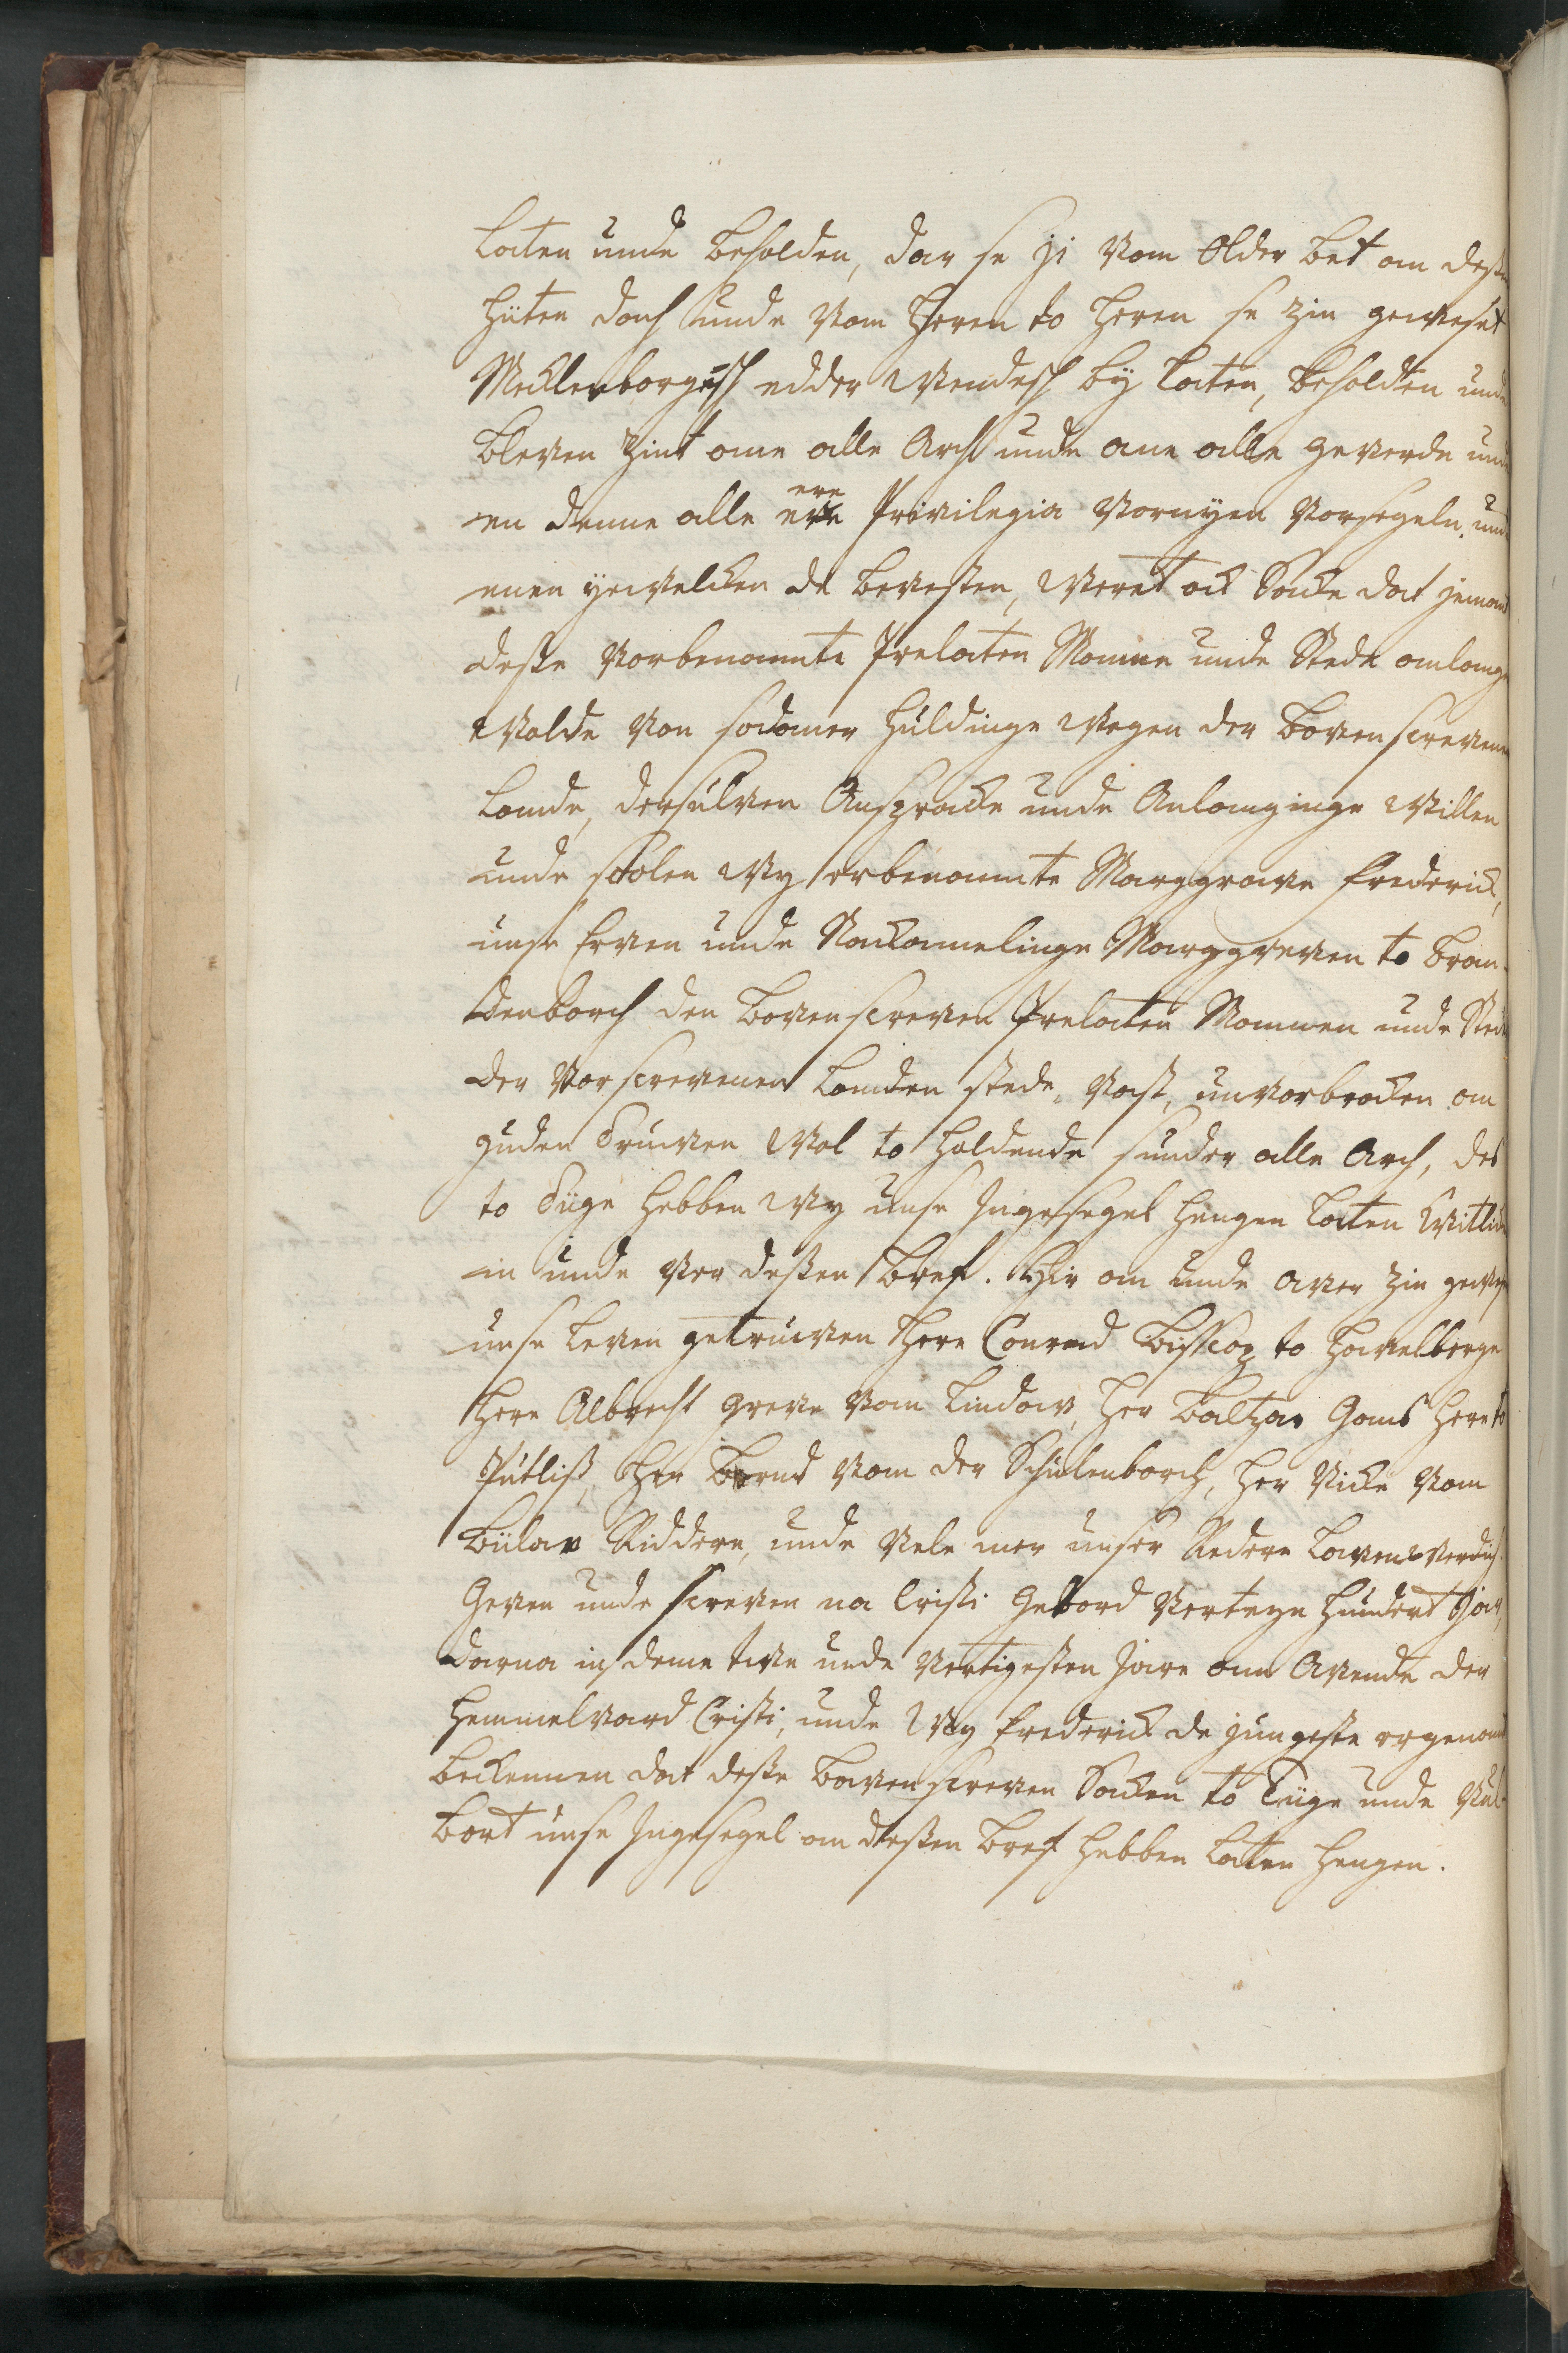 laten unde beholden, dar se ji van Older bet an dessen
hüten dach unde van Heren to Heren se zin geweset
Mecklenborgesch edder Wendesch by laten, beholden unde
bleven zint ane alle Arch unde ane alle geverde und
en denne alle ere Privilegia vornyen vorsegeln und
enen ytvelcken de bevesten, Weret ock Sacke dat jemand
desse vorbenannte Prelaten Manne unde Stede anlange
wolde van sodaner Huldinge wegen der boven screvenen
Lande, dersulven Ansprake unde Anlanginge Willen
unde scholen Wy erbenannte Marggrave Frederick,
unse Erven unde Nackamelinge Marggreven to Bran-
denborch den boven screven Prelaten Mannen unde Stede
der vorscrevenen Landen stede, vast, unvorbrocken an
guden Truwen wol to holdende sunder alle Arch, des
to Tüge hebben Wy unse Ingesegel hengen laten Witlick
in unde vor dessen Breff. Hir an unde aver zin gewest
unse leven getruwen Here Conrad Bisscop to Havelberge
Here Albrecht Greve van Lindow, Her Baltzar Gans Here to
Putliss, Her Bernd van der Schulenborch, Her Vicke van
Bülow Riddere, unde vele mer unser Redere lavenwerdich.
Geven unde screven na Cristi Gebord verteyn hundert Jar,
darna in deme twe unde vertigesten Jare ann Avende der
Hemmelvard Cristi, unde Wy Frederick de jungeste ergenannt
bekennen dat desse boven screven Sacken to Tüge unde Vul-
bort unse Ingesegel an dessen Breff hebben laten hengen.